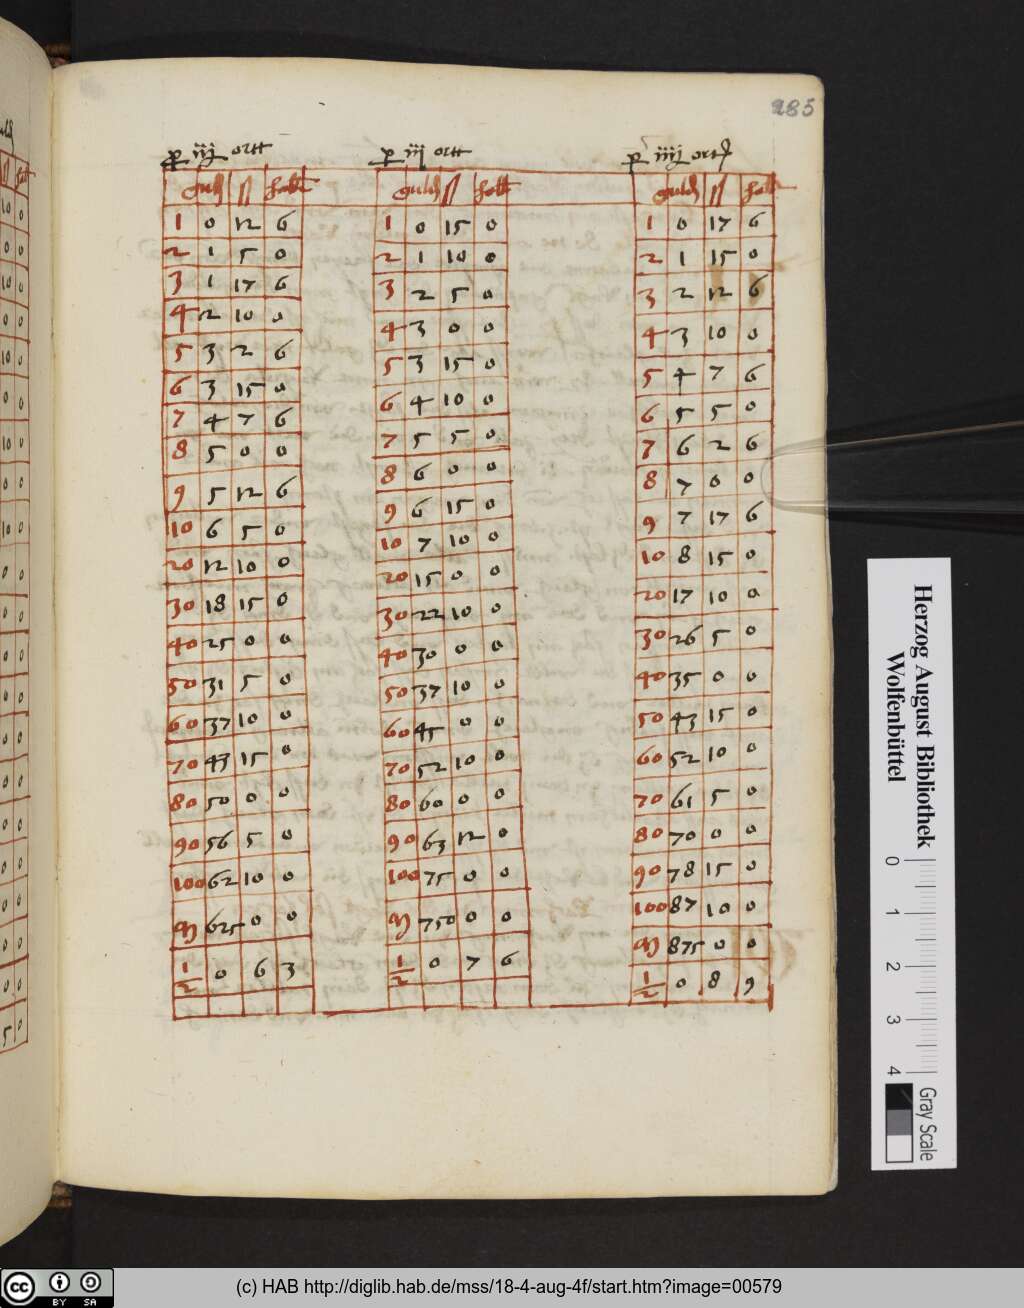 285
p iij ortt
guld ß hall
1 0 12 6
2 1 5 0
3 1 17 6
4 2 10 0
5 3 2 6
6 3 15 0
7 4 7 6
8 5 0 0
9 5 12 6
10 6 5 0
20 12 10 0
30 18 15 0
40 25 0 0
50 31 5 0
60 37 10 0
70 43 15 0
80 50 0 0
90 56 5 0
100 62 10 0
625 0 0
1/2 0 6 3
p iij ortt
guld ß hall
1 0 15 0
2 1 10 0
3 2 5 0
4 3 0 0
5 3 15 0
6 4 10 0
7 5 5 0
8 6 0 0
9 6 15 0
10 7 10 0
20 15 0 0
30 22 10 0
40 30 0 0
50 37 10 0
60 45 0 0
70 52 10 0
80 60 0 0
90 63 12 0
100 75 0 0
750 0 0
1/2 0 7 6
p iiij ort
guld ß hall
1 0 17 6
2 1 15 0
3 2 12 6
4 3 10 0
5 4 7 6
6 5 5 0
7 6 2 6
8 7 0 0
9 7 17 6
10 8 15 0
20 17 10 0
30 26 5 0
40 35 0 0
50 43 15 0
60 52 10 0
70 61 5 0
80 70 0 0
90 78 15 0
100 87 10 0
875 0 0
1/2 0 8 9
Herzog August Bibliothek
Wolfenbüttel
0 1 2 3 4
Gray Scale
(c) HAB http://diglib.hab.de/mss/18-4-aug-4f/start.htm?image=00579
cc BY SA